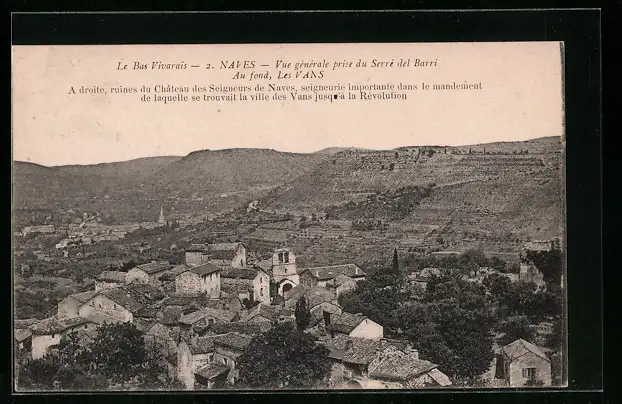 Le Bas Vivarais — 2. NAVES — Vue générale prise du Serre del Barri
Au fond, Les VANS
A droite, ruines du Château des Seigneurs de Naves, seigneurie importante dans le mandement
de laquelle se trouvait la ville des Vans jusqu'à la Révolution